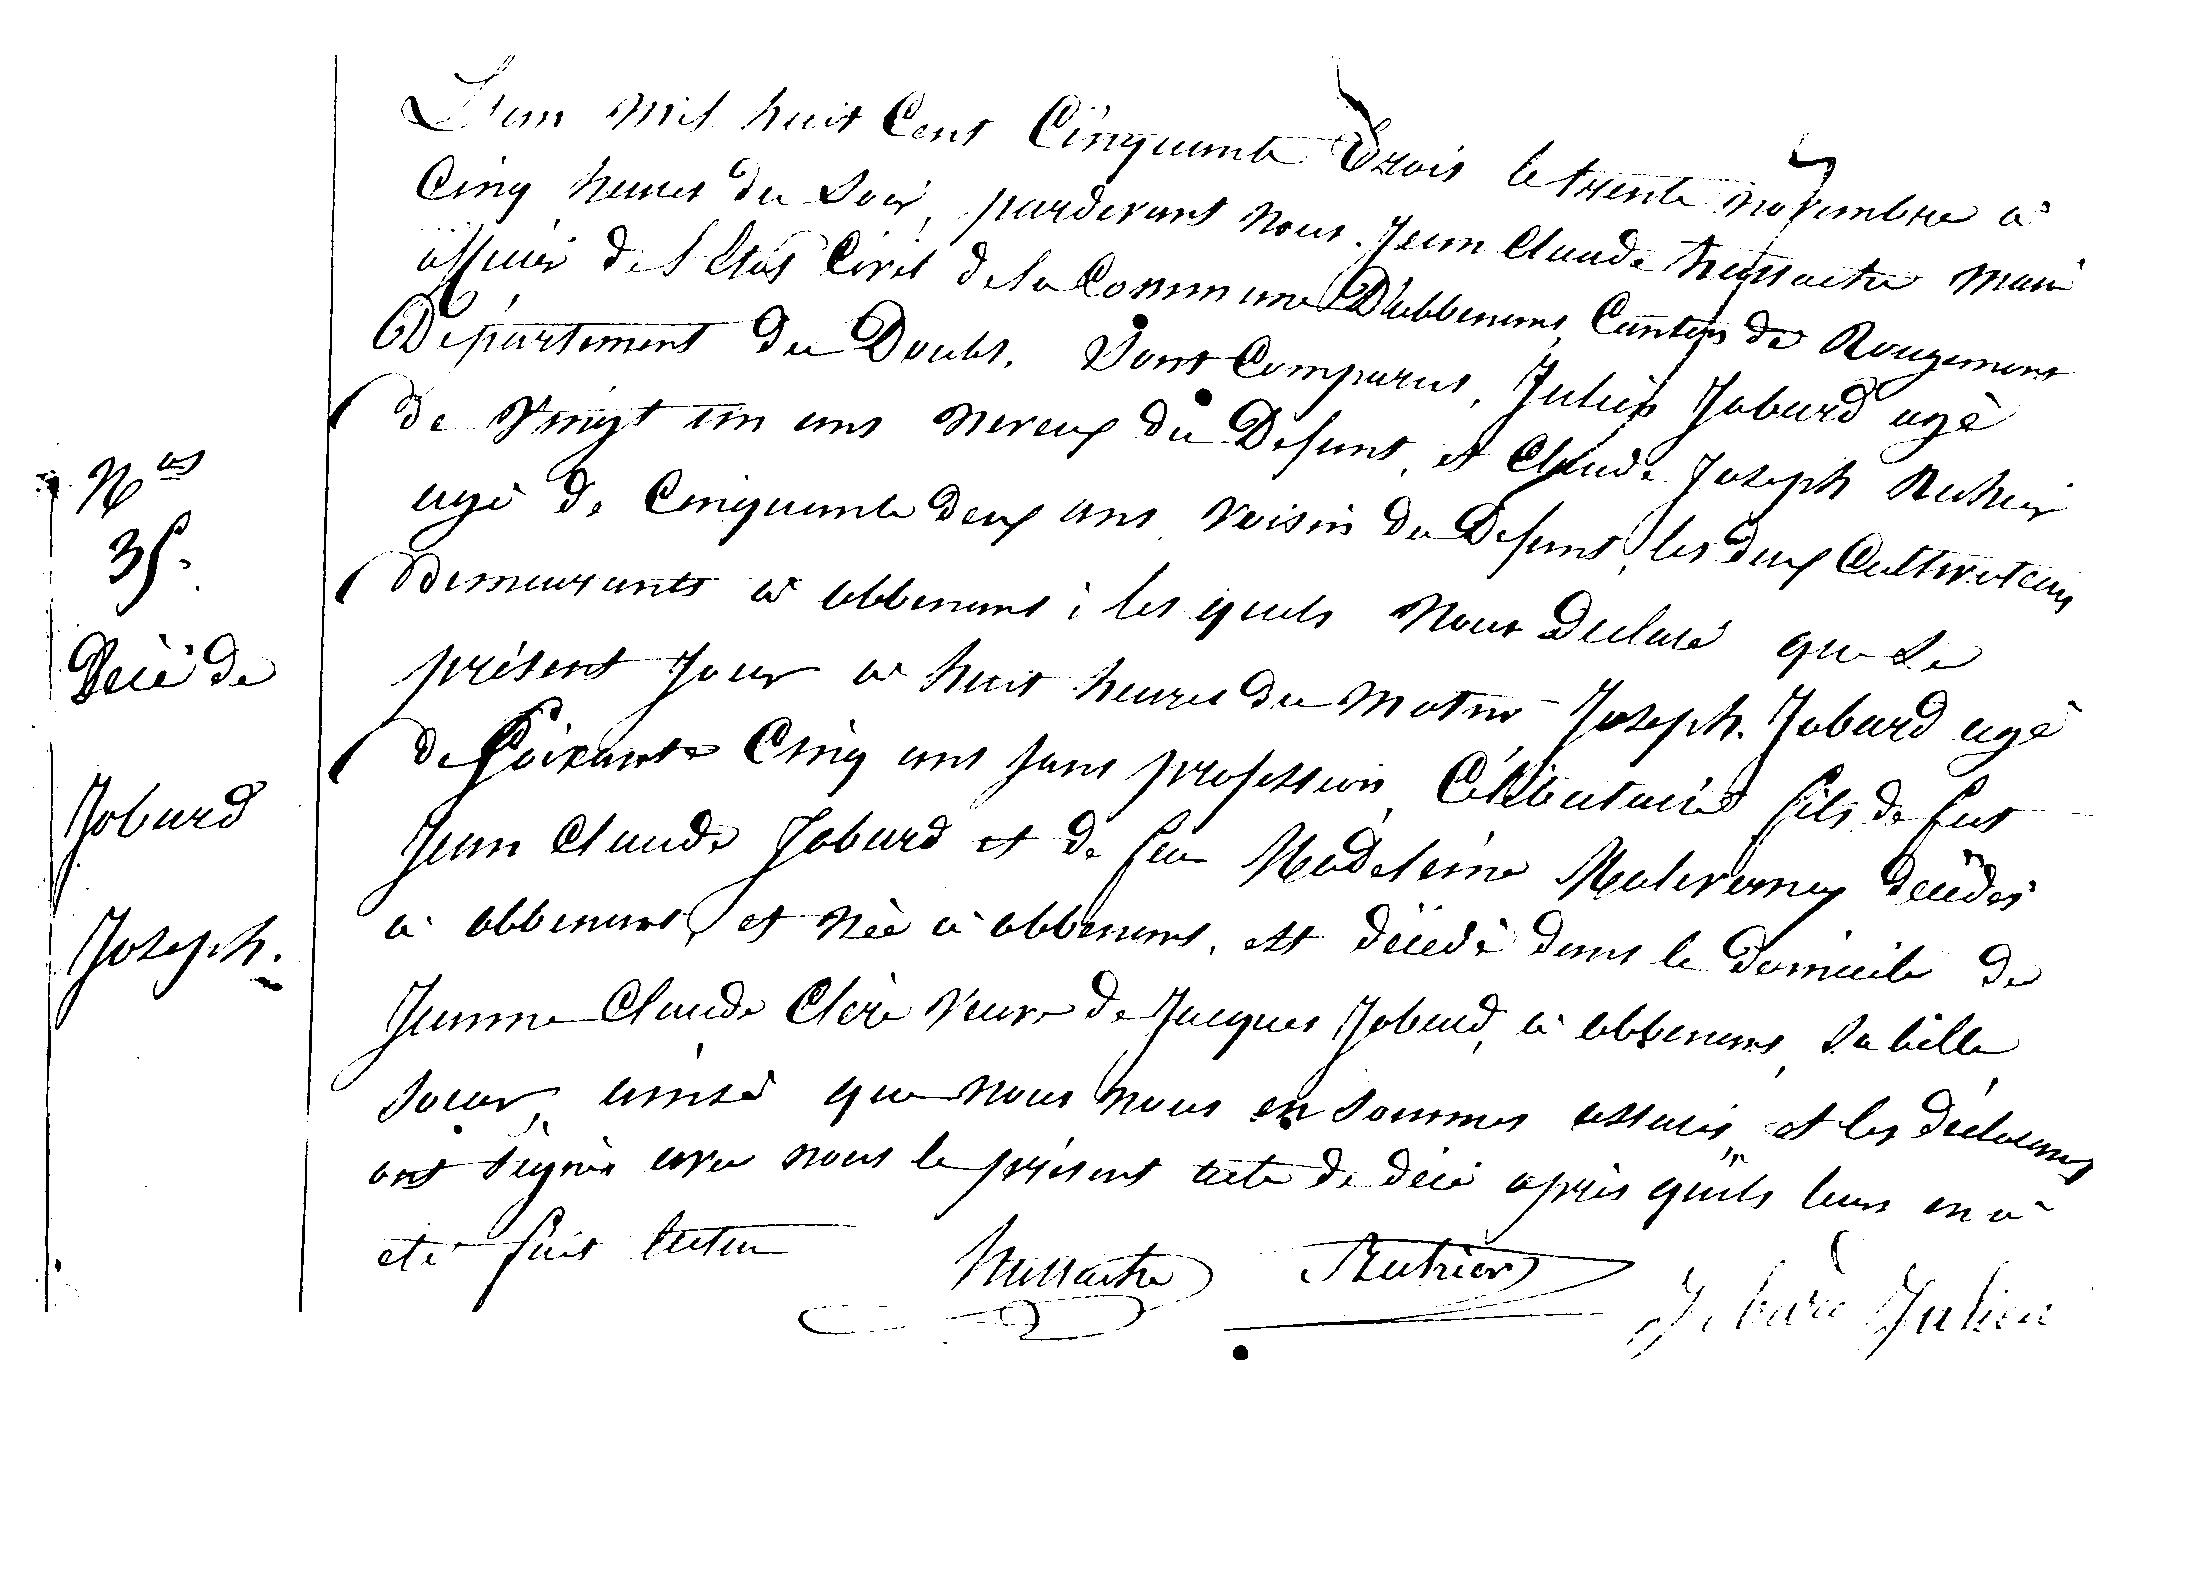 N.os
35.
Décè de
Jobard
Joseph.
L'an mil huit Cent Cinquante Trois le trente novembre à
Cinq heures du Soir, pardevant nous. Jean Claude maire
officier de l'Etat Civil de la Commune D'abbenans, Canton de Rougemont
Département du Doubs. Sont Comparus, Julien Jobard agé
de Vingt un ans neveux du Defunt, et Claude Joseph
agé de Cinquante deux ans voisin du Defunt, les deux Cultivateurs
Demeurants à abbenans ; les quels nous Declaré que Le
présent Jour à huit heures du matin Joseph. Jobard agé
de Soixante Cinq ans sans profession, Célibataire fils de fut
Jean Claude Jobard et de feue Madeleine décédés
à abbenans, et née à abbenans, est décédé dans le domicile de
Jeanne Claude Clere veuve de Jacques Jobard, à abbenans, Sa belle
Soeur, ainsi que nous nous en sommes assuré, et les déclarants
ont signés avec nous le présent acte de décè après qu'ils leurs en à
eté fait lecture
Jobard Julien